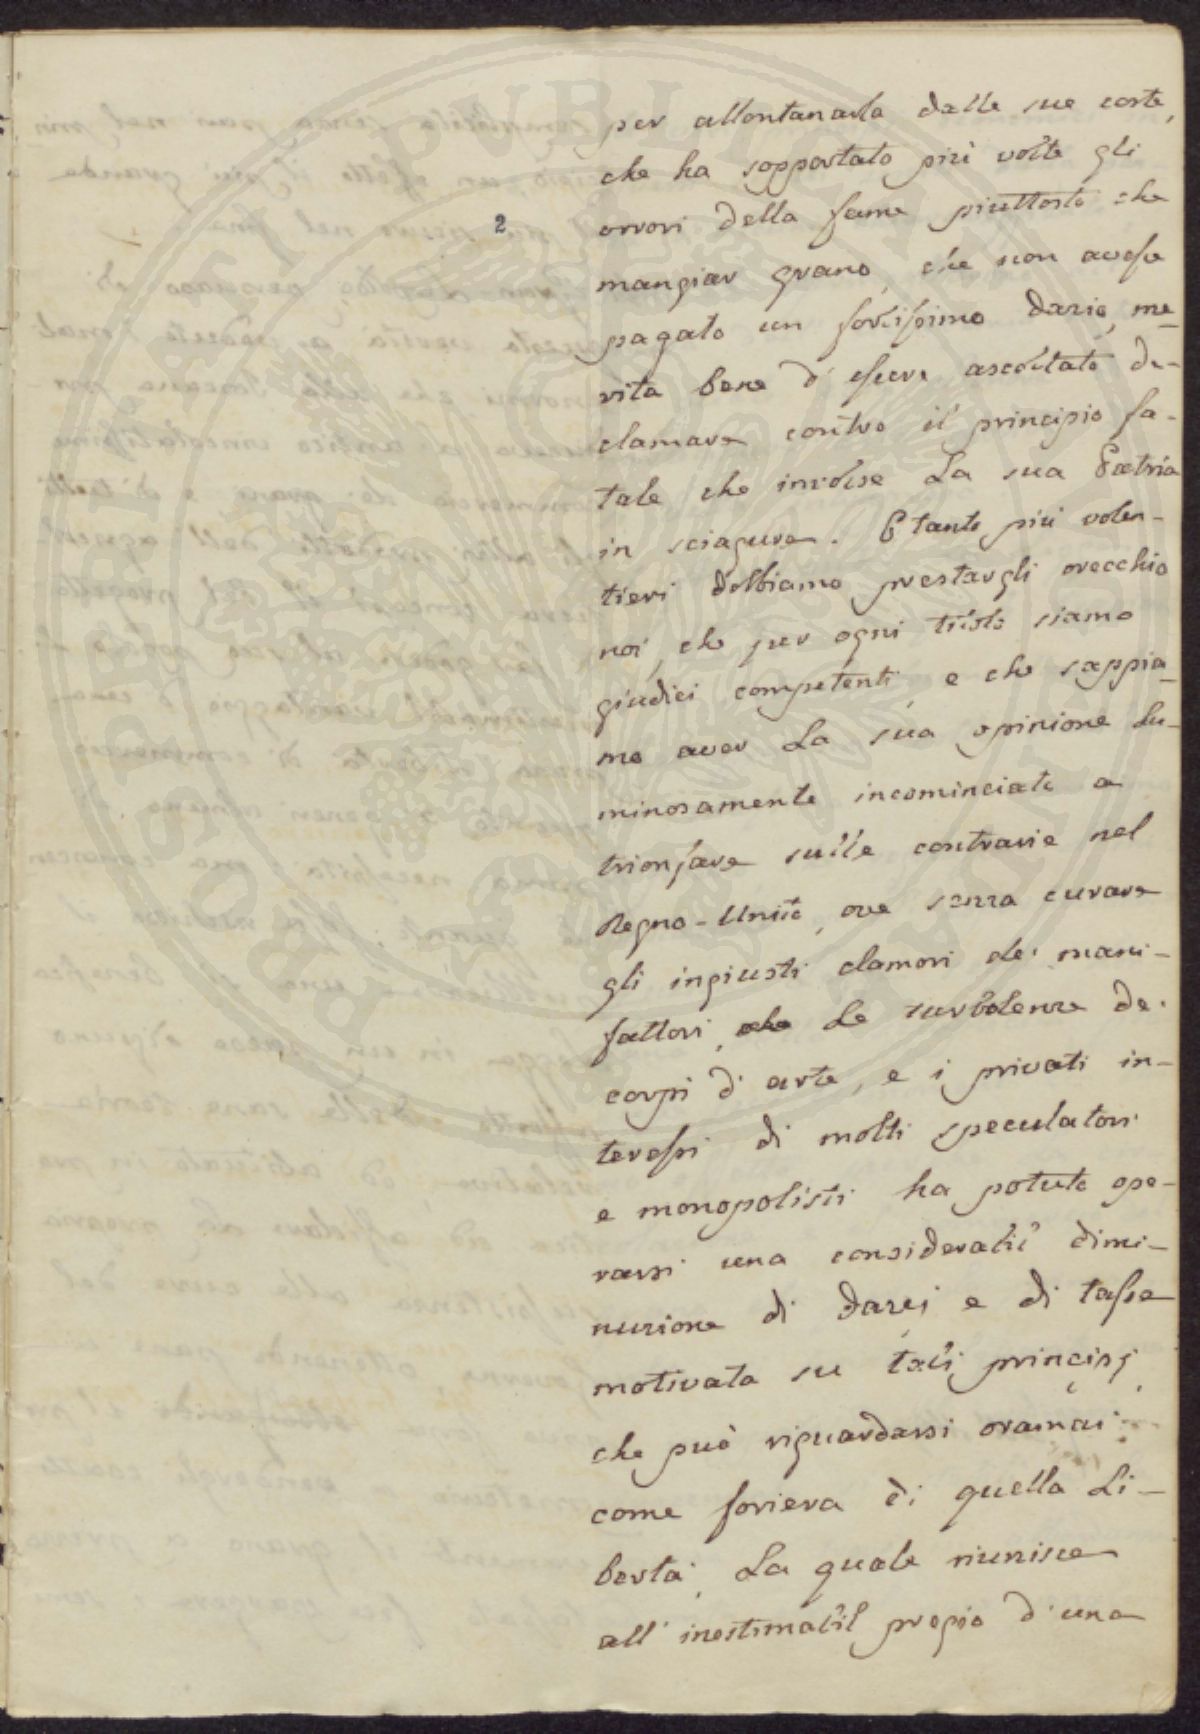 per allontanarla dalle sue coste,
che ha sopportato più volte gli
orrori della fame piuttosto che
mangiar grano, che non avesse
pagato un fortissimo dazio, me-
rita bene d'essere ascoltato de-
clamare contro il principio fa-
tale che involse la sua Patria
in sciagure. E tanto più volen-
tieri dobbiamo prestargli orecchio
noi, che per ogni titolo siamo
giudici competenti, e che sappia-
mo aver la sua opinione lu-
minosamente incominciato a
trionfare sulle contrarie nel
Regno-Unito, ove senza curare
gli ingiusti clamori de' mani-
fattori, che le turbolenze de'
corpi d'arte, e i privati in-
teressi di molti speculatori
e monopolisti ha potuto ope-
rarsi una considerabil dimi-
nuzione di dazi e di tasse
motivata su tali principj,
che può riguardarsi oramai
come foriera di quella li-
bertà, la quale riunisce
all'inestimabil pregio d'una
2